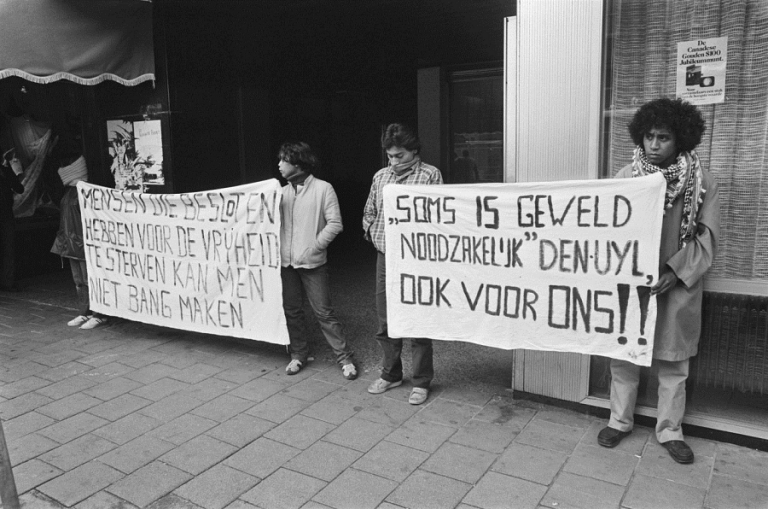 MENSEN DIE BESLOTEN
HEBBEN VOOR DE VRIJHEID
TE STERVEN KAN MEN
NIET BANG MAKEN
„SOMS IS GEWELD
NOODZAKELIJK" DEN-UYL,
OOK VOOR ONS!!
De
Canadese
Gouden $100
Jubileummunt.